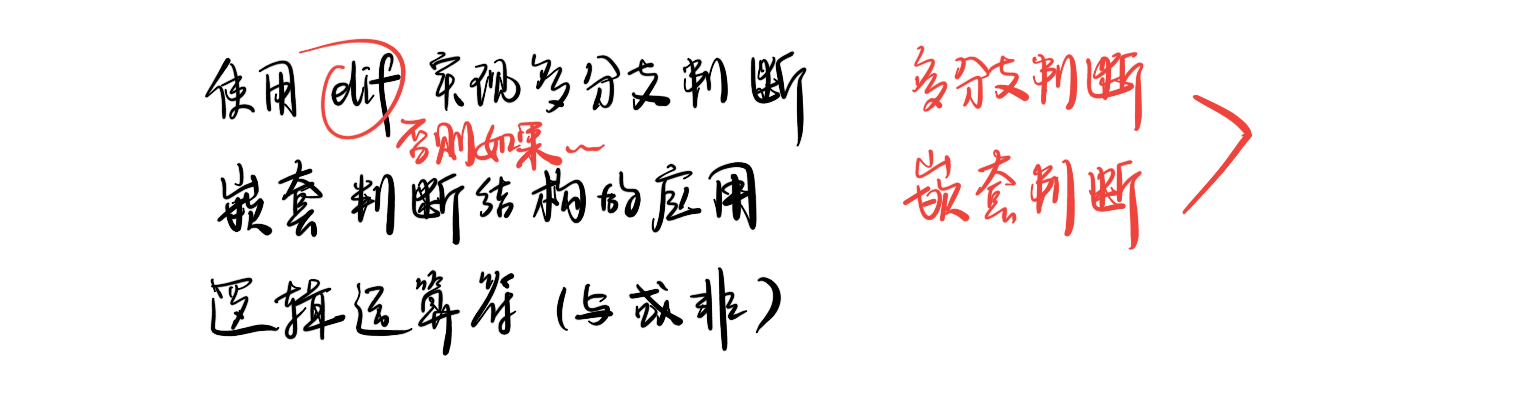 使用 elif 实现多分支判断
否则如果~
嵌套判断结构的应用
逻辑运算符（与或非）
多分支判断
嵌套判断